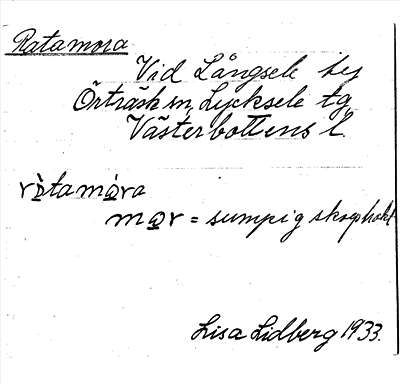 Ratamora
Vid Långsele by
Örträsk sn, Lycksele tg
Västerbottens l.
ràtamóra
mor = sumpig skogstrakt
Lisa Lidberg 1933.